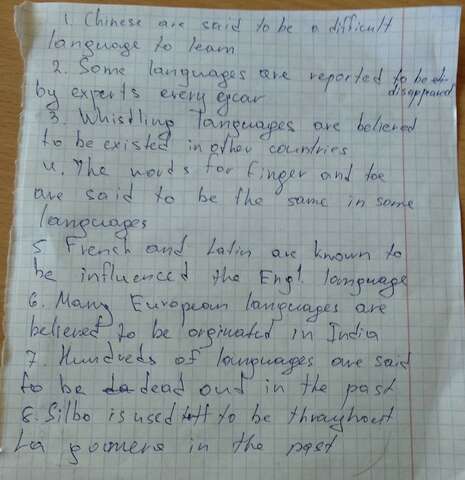 1. Chinese are said to be a difficult
language to learn
2. Some languages are reported to be
disappeared
by experts every
3. Whistling languages are believed
to be existed in other countries
4. The words for finger and toe
are said to be the same in some
languages
5. French and Latin are known to
be influenced the Engl. language
6. Many European languages are
believed to be orginated in India
7. Hundreds of languages are said
to be dead out in the past
8. Silbo is used to be throughout
La gomera in the past